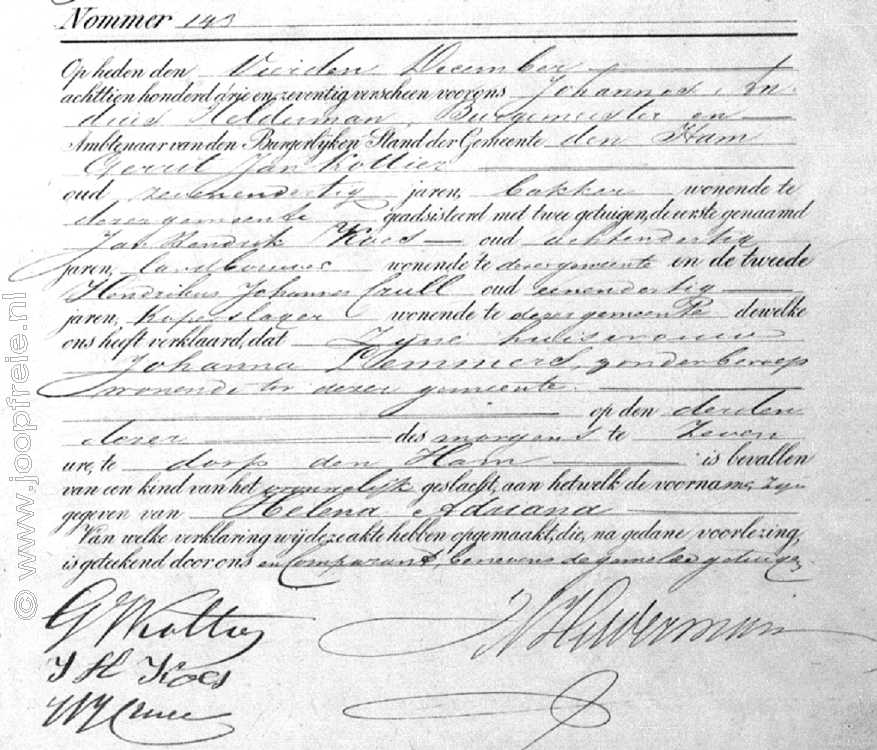 Nommer 143
Op heden den Vierden December
achttien honderd drie en zeventig verscheen voor ons Johannes An
dries Helderman, Burgemeester en
Ambtenaar van den Burgerlijken Stand der Gemeente den Ham
Gerrit Jan Kottier
oud zevenendertig jaren, bakker wonende te
dezer gemeente geadsisteerd met twee getuigen, de eerste genaamd
Jan Hendrik Koes oud achtendertig
jaren, landbouwer wonende te dezer gemeente en de tweede
Hendrikus Johannes Crull oud eenendertig
jaren, Koperslager wonende te dezer gemeente dewelke
ons heeft verklaard, dat Zijne huisvrouw
Johanna Hemmers, zonder beroep
wonende te dezer gemeente.
op den derden
dezer des morgens te Zeven
ure, te dorp den Ham is bevallen
van een kind van het vrouwelijk geslacht, aan hetwelk de voorname zijn
gegeven van Helena Adriana
Van welke verklaring wij deze akte hebben opgemaakt, die, na gedane voorlezing,
is geteekend door ons en Comparant, benevens de gemelde getuigen
G J Kottier
J H Koes
H J Crull
J A Helderman
© www.joopfreie.nl